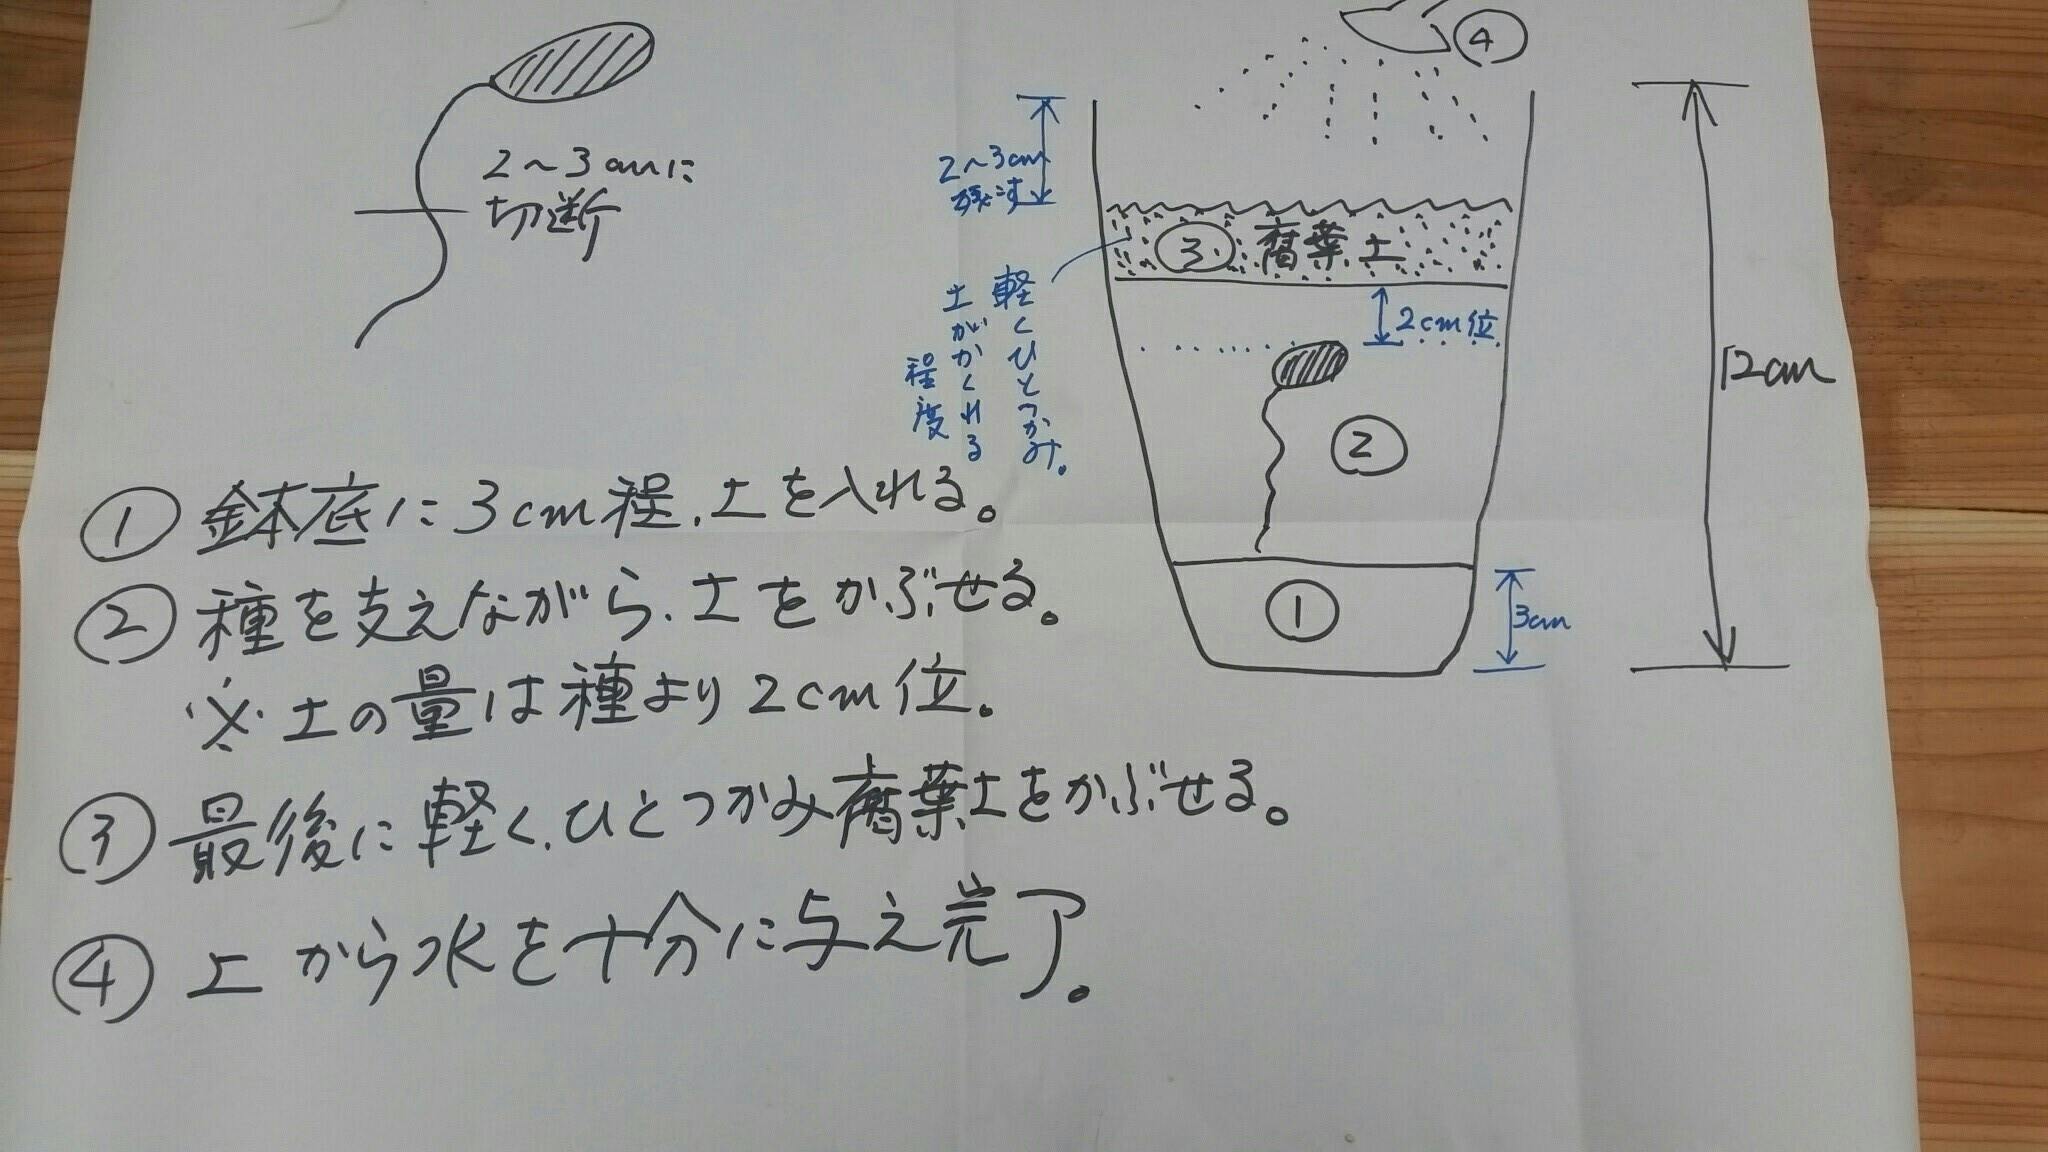 2～3cmに
切断
④
2～3cm
残す
③ 腐葉土
軽くひとつかみ。
土がかくれる
程度
2cm位
②
12cm
①
3cm
① 鉢底に3cm程、土を入れる。
② 種を支えながら、土をかぶせる。
※土の量は種より2cm位。
③ 最後に軽く、ひとつかみ腐葉土をかぶせる。
④ 上から水を十分に与え完了。